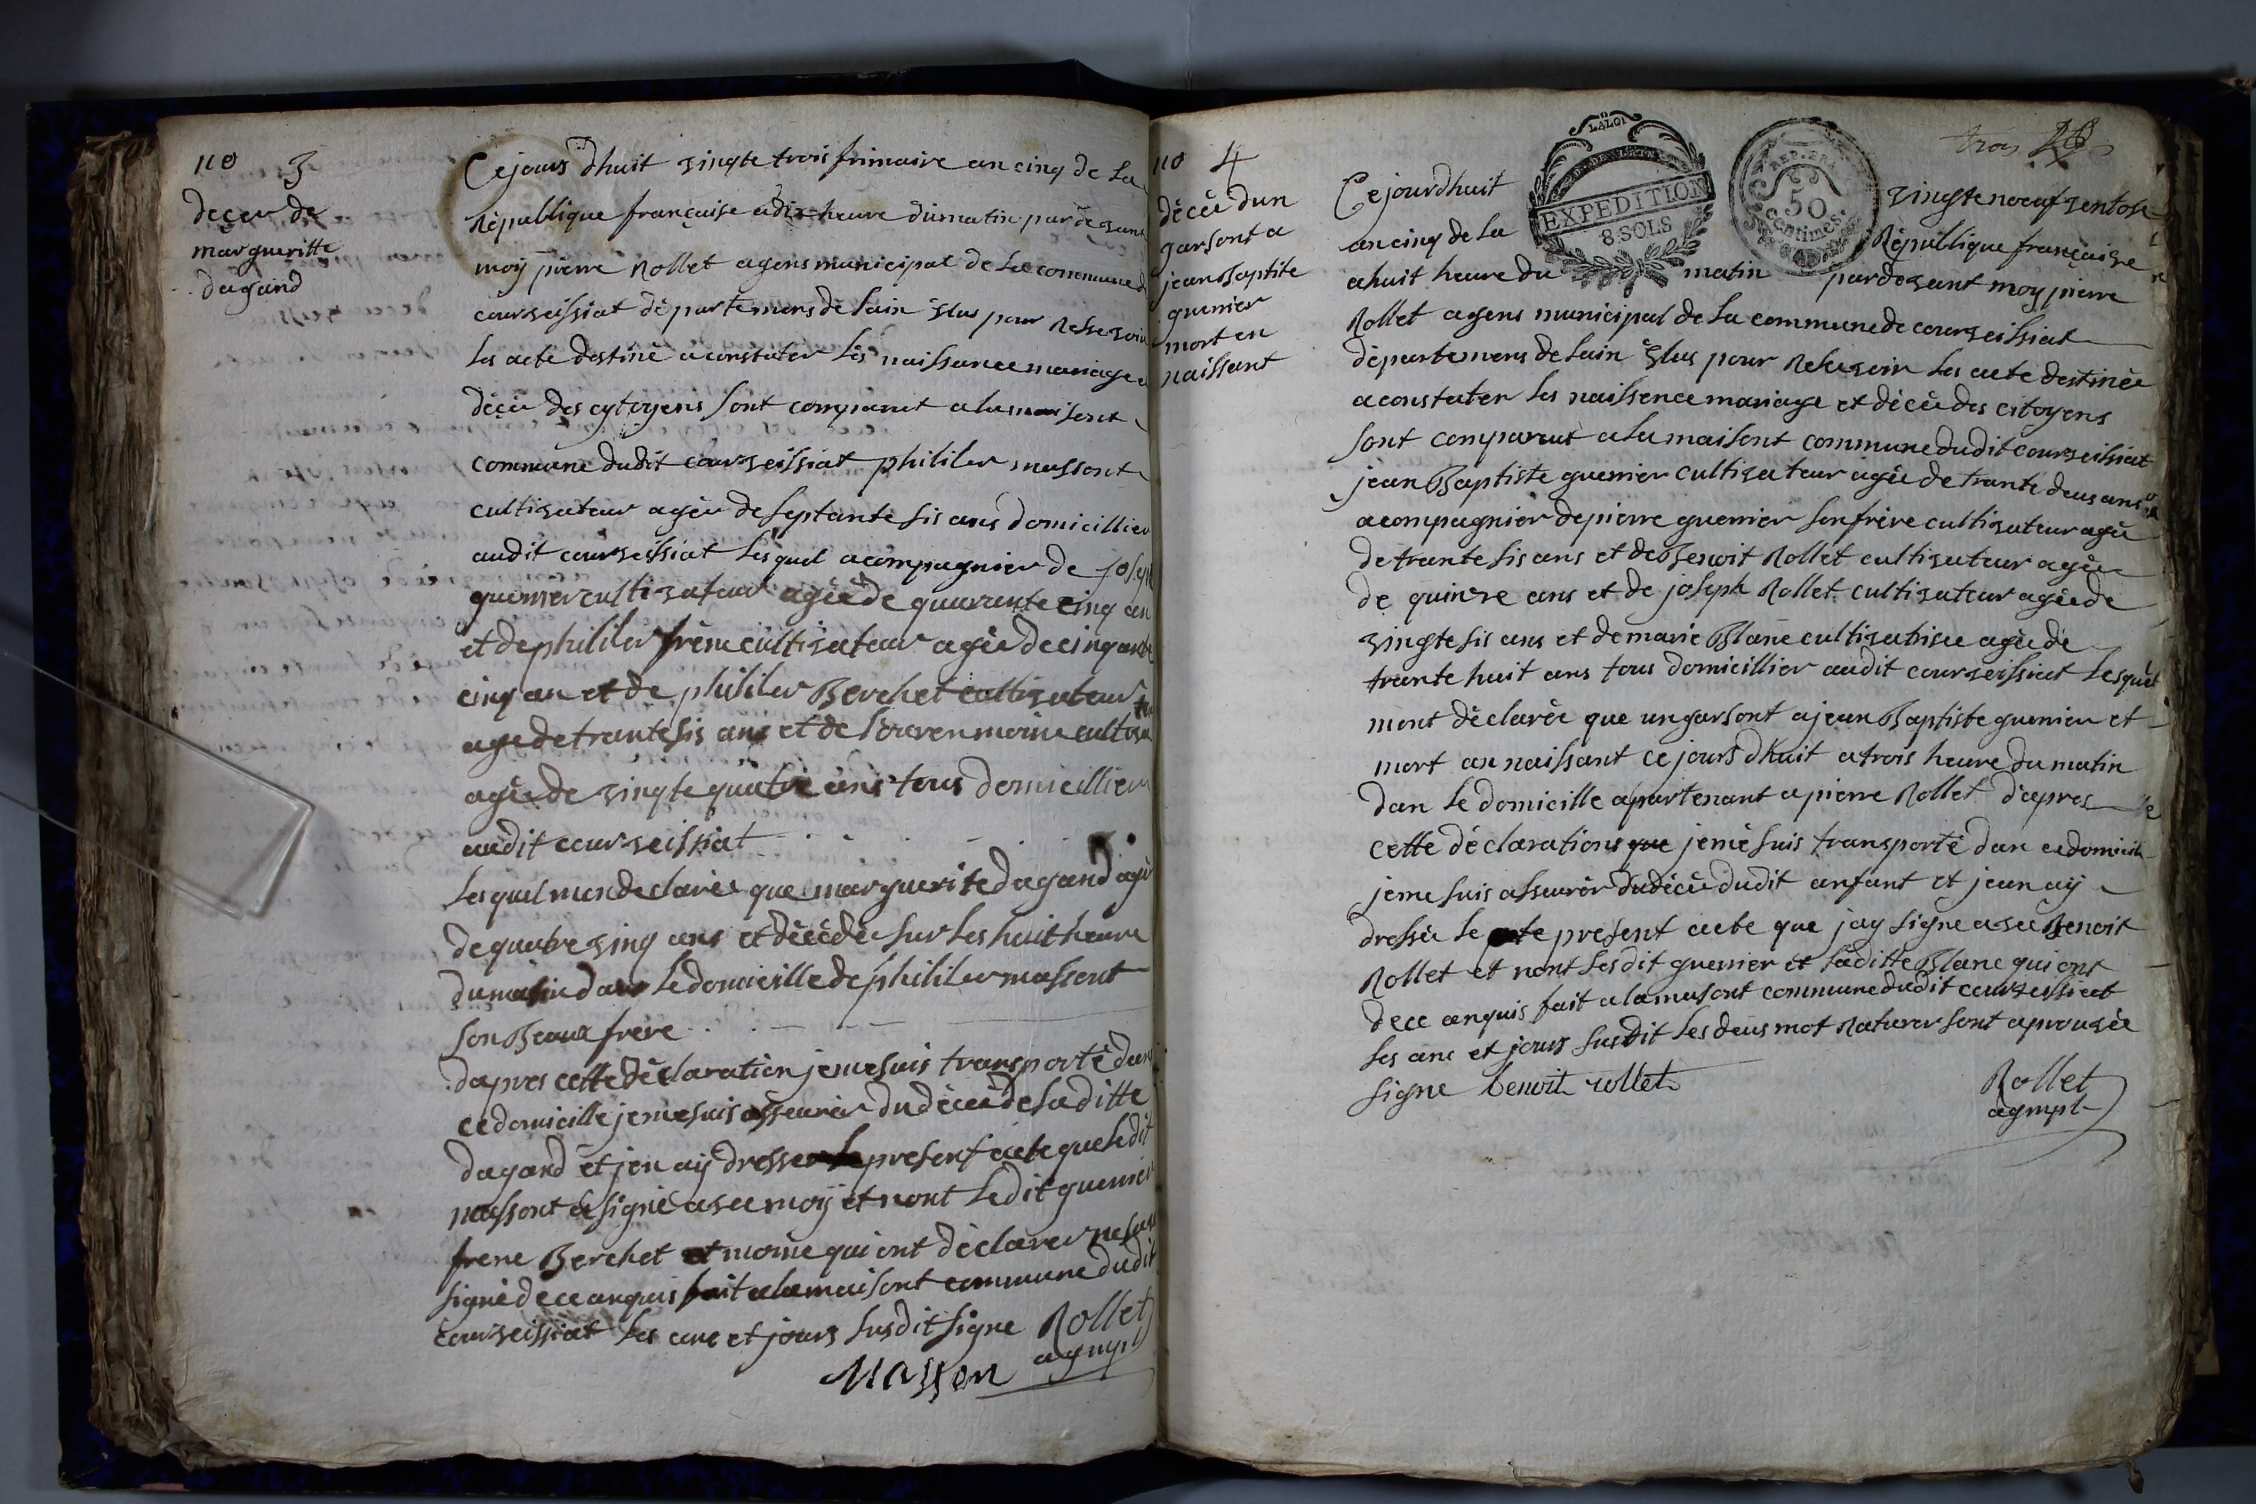 no 3
decer de
margueritte
dagand
Cejours dhuit vingte trois frimaire an cinq de La
République française a dix heure du matin par devant
moÿ pierre Rollet agens municipal de La commune de
courveissiat départemens de Lain élus pour Reservoir
Les acte destiné a constater Les naissance mariage et
décée des cytoyens sont comparut a la maisont
commune dudit courveissiat philiber massont
cultivateur agée de septante sis ans domicillier
audit courveissiat Lesquel acompagnier de joseph
guenier cultivateur agée de quarante cinq an
et de philiber frene cultivateur agée de cinquante
cinq an et de philiber Berchet cultivateur
age de trante sis ans et de moine cultiva
agée de vingte quatre ans tous domicillier
audit courveissiat
Lesquel mon declarée que marguerite dagand agée
de quatre vinq ans et décédée sur Les huit heure
du matin dans Le domicille de philiber massont
son Beaux frere
dapres cette déclaration je me suis transporté dans
ce domicille je me suis asseurér du décée de La ditte
dagand et jen aÿ dresser le present acte que Ledit
massont a signé avec moÿ et nont Ledit guenier
frene Berchet et moine qui ont déclarer ne savoir
signé de ce anquis fait a la maisont commune dudit
courveissiat Les ans et jours susdit signe Rollet
agmpl
Masson
no 4
décée dun
garsont a
jean Baptite
guenier
mort en
naissant
LA LOI
EXPEDITION
8 SOLS
REP. FRA
50
Centimes.
trois
Cejourdhuit vingte noeuf ventose
an cinq de La République française
a huit heure du matin pardevant moy pierre
Rollet agens municipal de La commune de courveissiat
départemens de Lain élus pour Reservoir Les acte destinée
a constater Les naissence mariage et décée des citoyens
sont comparut a La maisont commune dudit courveissiat
jean Baptiste guenier cultivateur agée de trante deus ans
acompagnier de pierre guenier son frére cultivateur agée
de trante sis ans et de Benoit Rollet cultivateur agée
de quinze ans et de joseph Rollet cultivateur agée de
vingte sis ans et de marie Blanc cultivatrise agée de
trante huit ans tous domicillier audit courveissiat Lesquel
mont déclarée que un garsont a jean Baptiste guenier et
mort an naissant ce jours dhuit a trois heure du matin
dan Le domicille apartenant a pierre Rollet d'apres
cette déclarations que je mé suis transporté dan ce domicile
je me suis asseurér du décée dudit anfant et jean aÿ
dressée Le present acte que jay signe avec Benoit
Rollet et nont Lesdit guenier et Laditte Blanc qui ont
de ce anquis fait a la maisont commune dudit courveissiat
Les ans et jours susdit Les deus mot Raturer sont aprouvée
signe benoit rollet
Rollet
agmpl